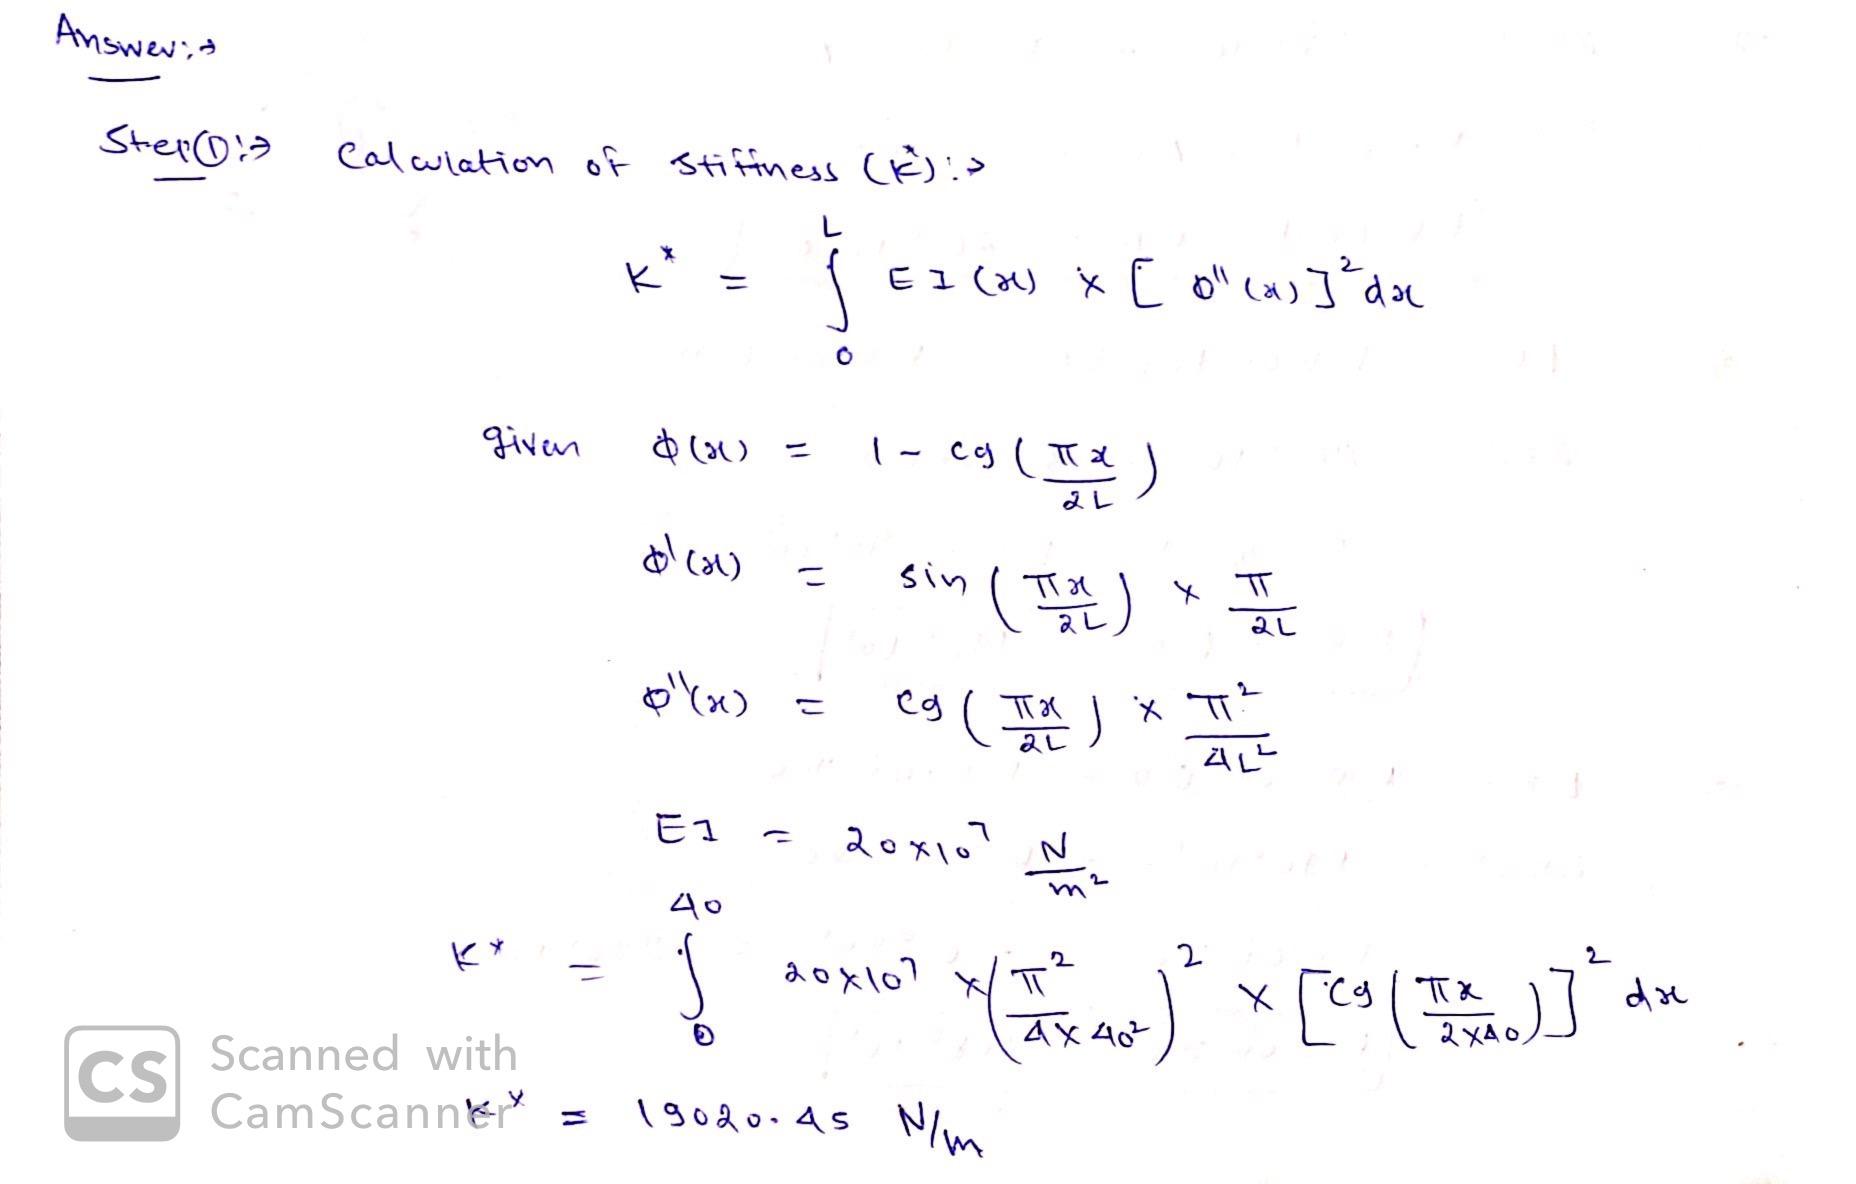 Answer:→
Step①:→ Calculation of stiffness (K*):→
K* = ∫₀ᴸ EI(x) × [ϕ''(x)]² dx
given ϕ(x) = 1 - cos(πx/2L)
ϕ'(x) = sin(πx/2L) × π/2L
ϕ''(x) = cos(πx/2L) × π²/4L²
EI = 20×10⁷ N/m²
K* = ∫₀⁴⁰ 20×10⁷ × (π²/4×40²)² × [cos(πx/2×40)]² dx
K* = 19020.45 N/m
CS Scanned with
CamScanner